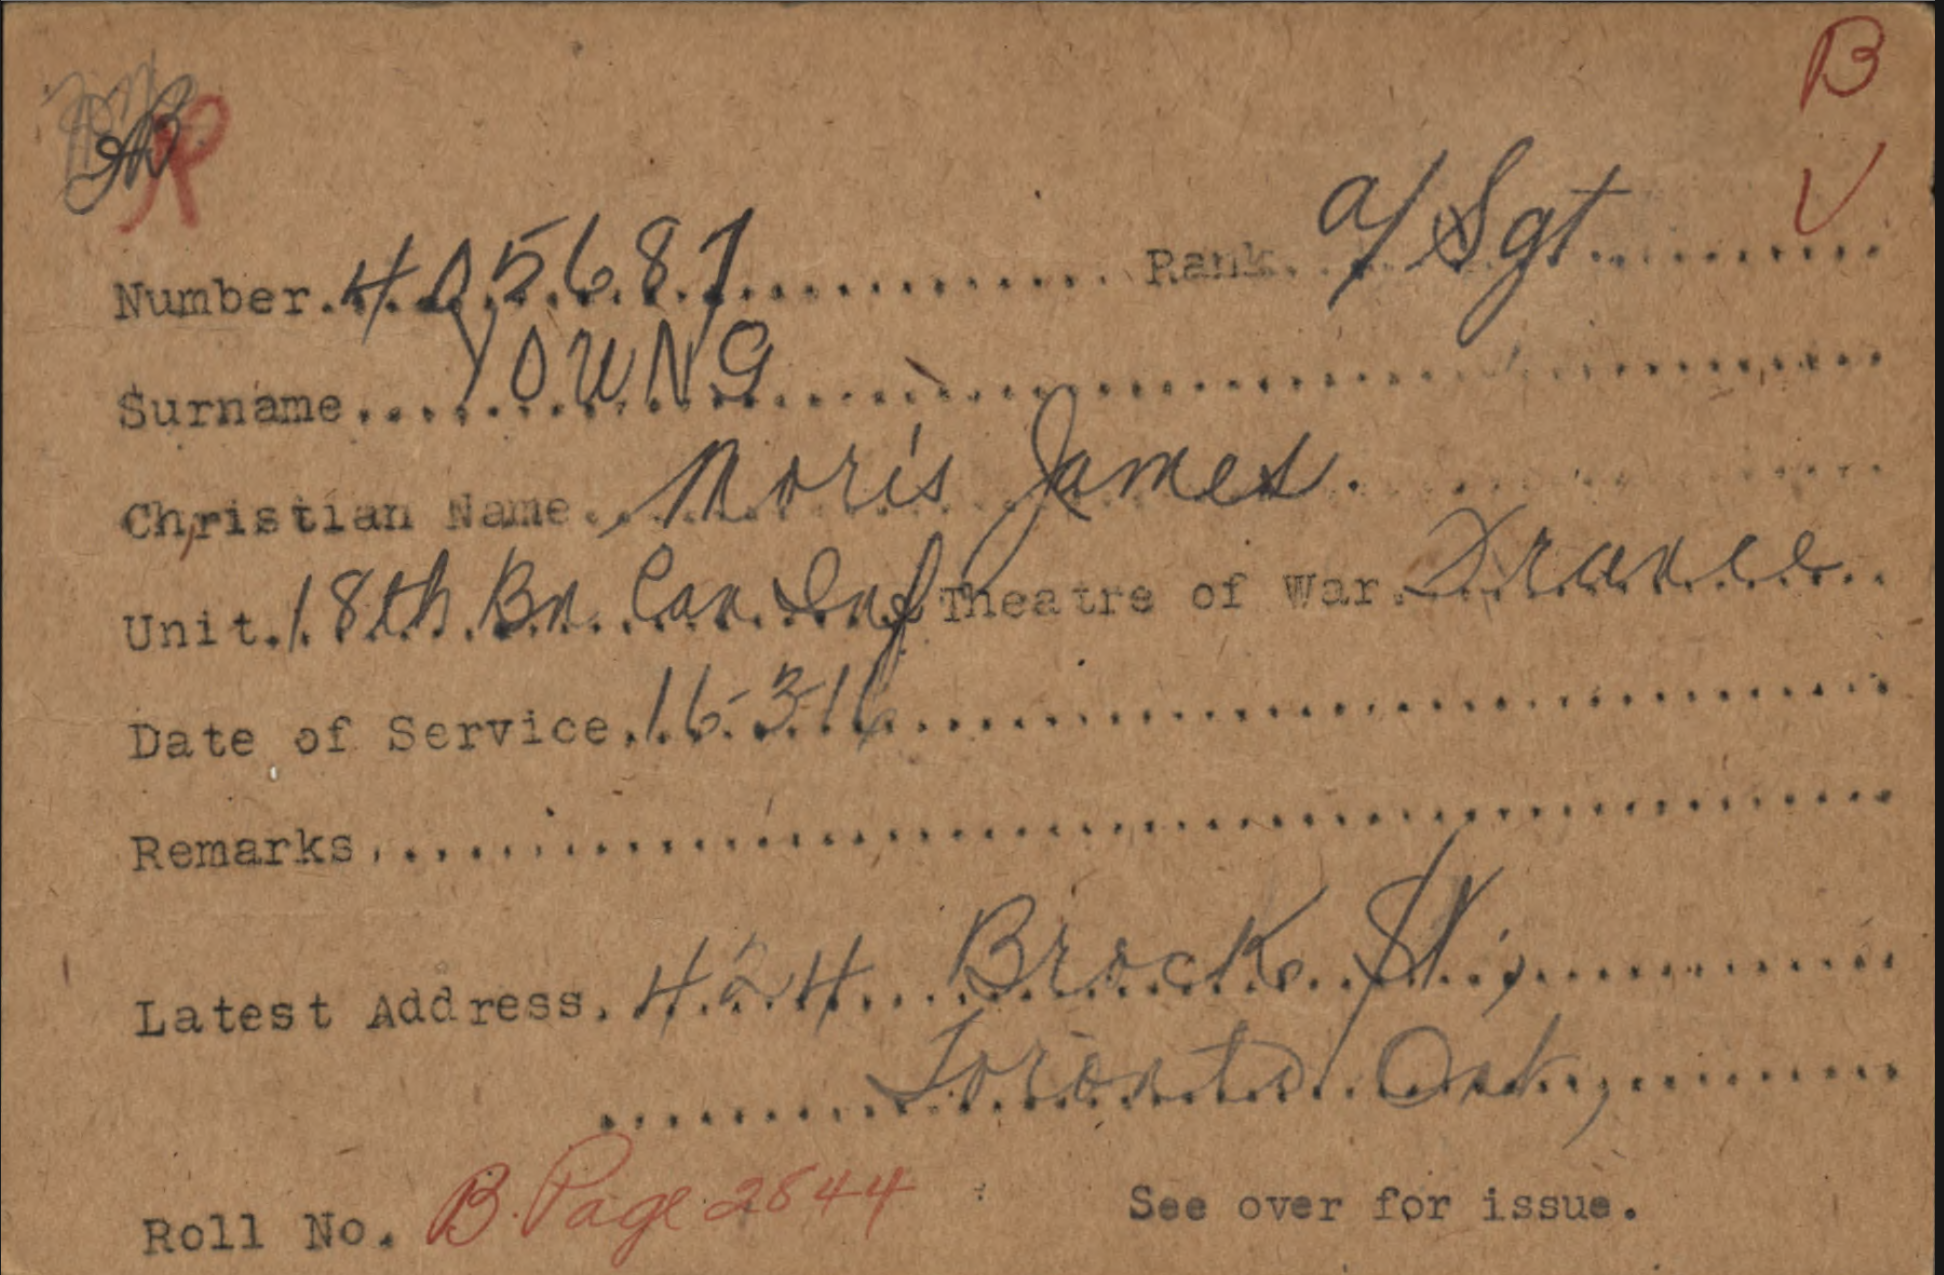 B
R
V
Number. 405687 Rank. a/Sgt
Surname YOUNG
Christian Name. Moris James.
Unit. 18th Bn. Can. Inf Theatre of War. France
Date of Service. 16-3-16
Remarks
Latest Address. 424 Brock St.,
Toronto. Ont,
Roll No. B. Page 2844 See over for issue.